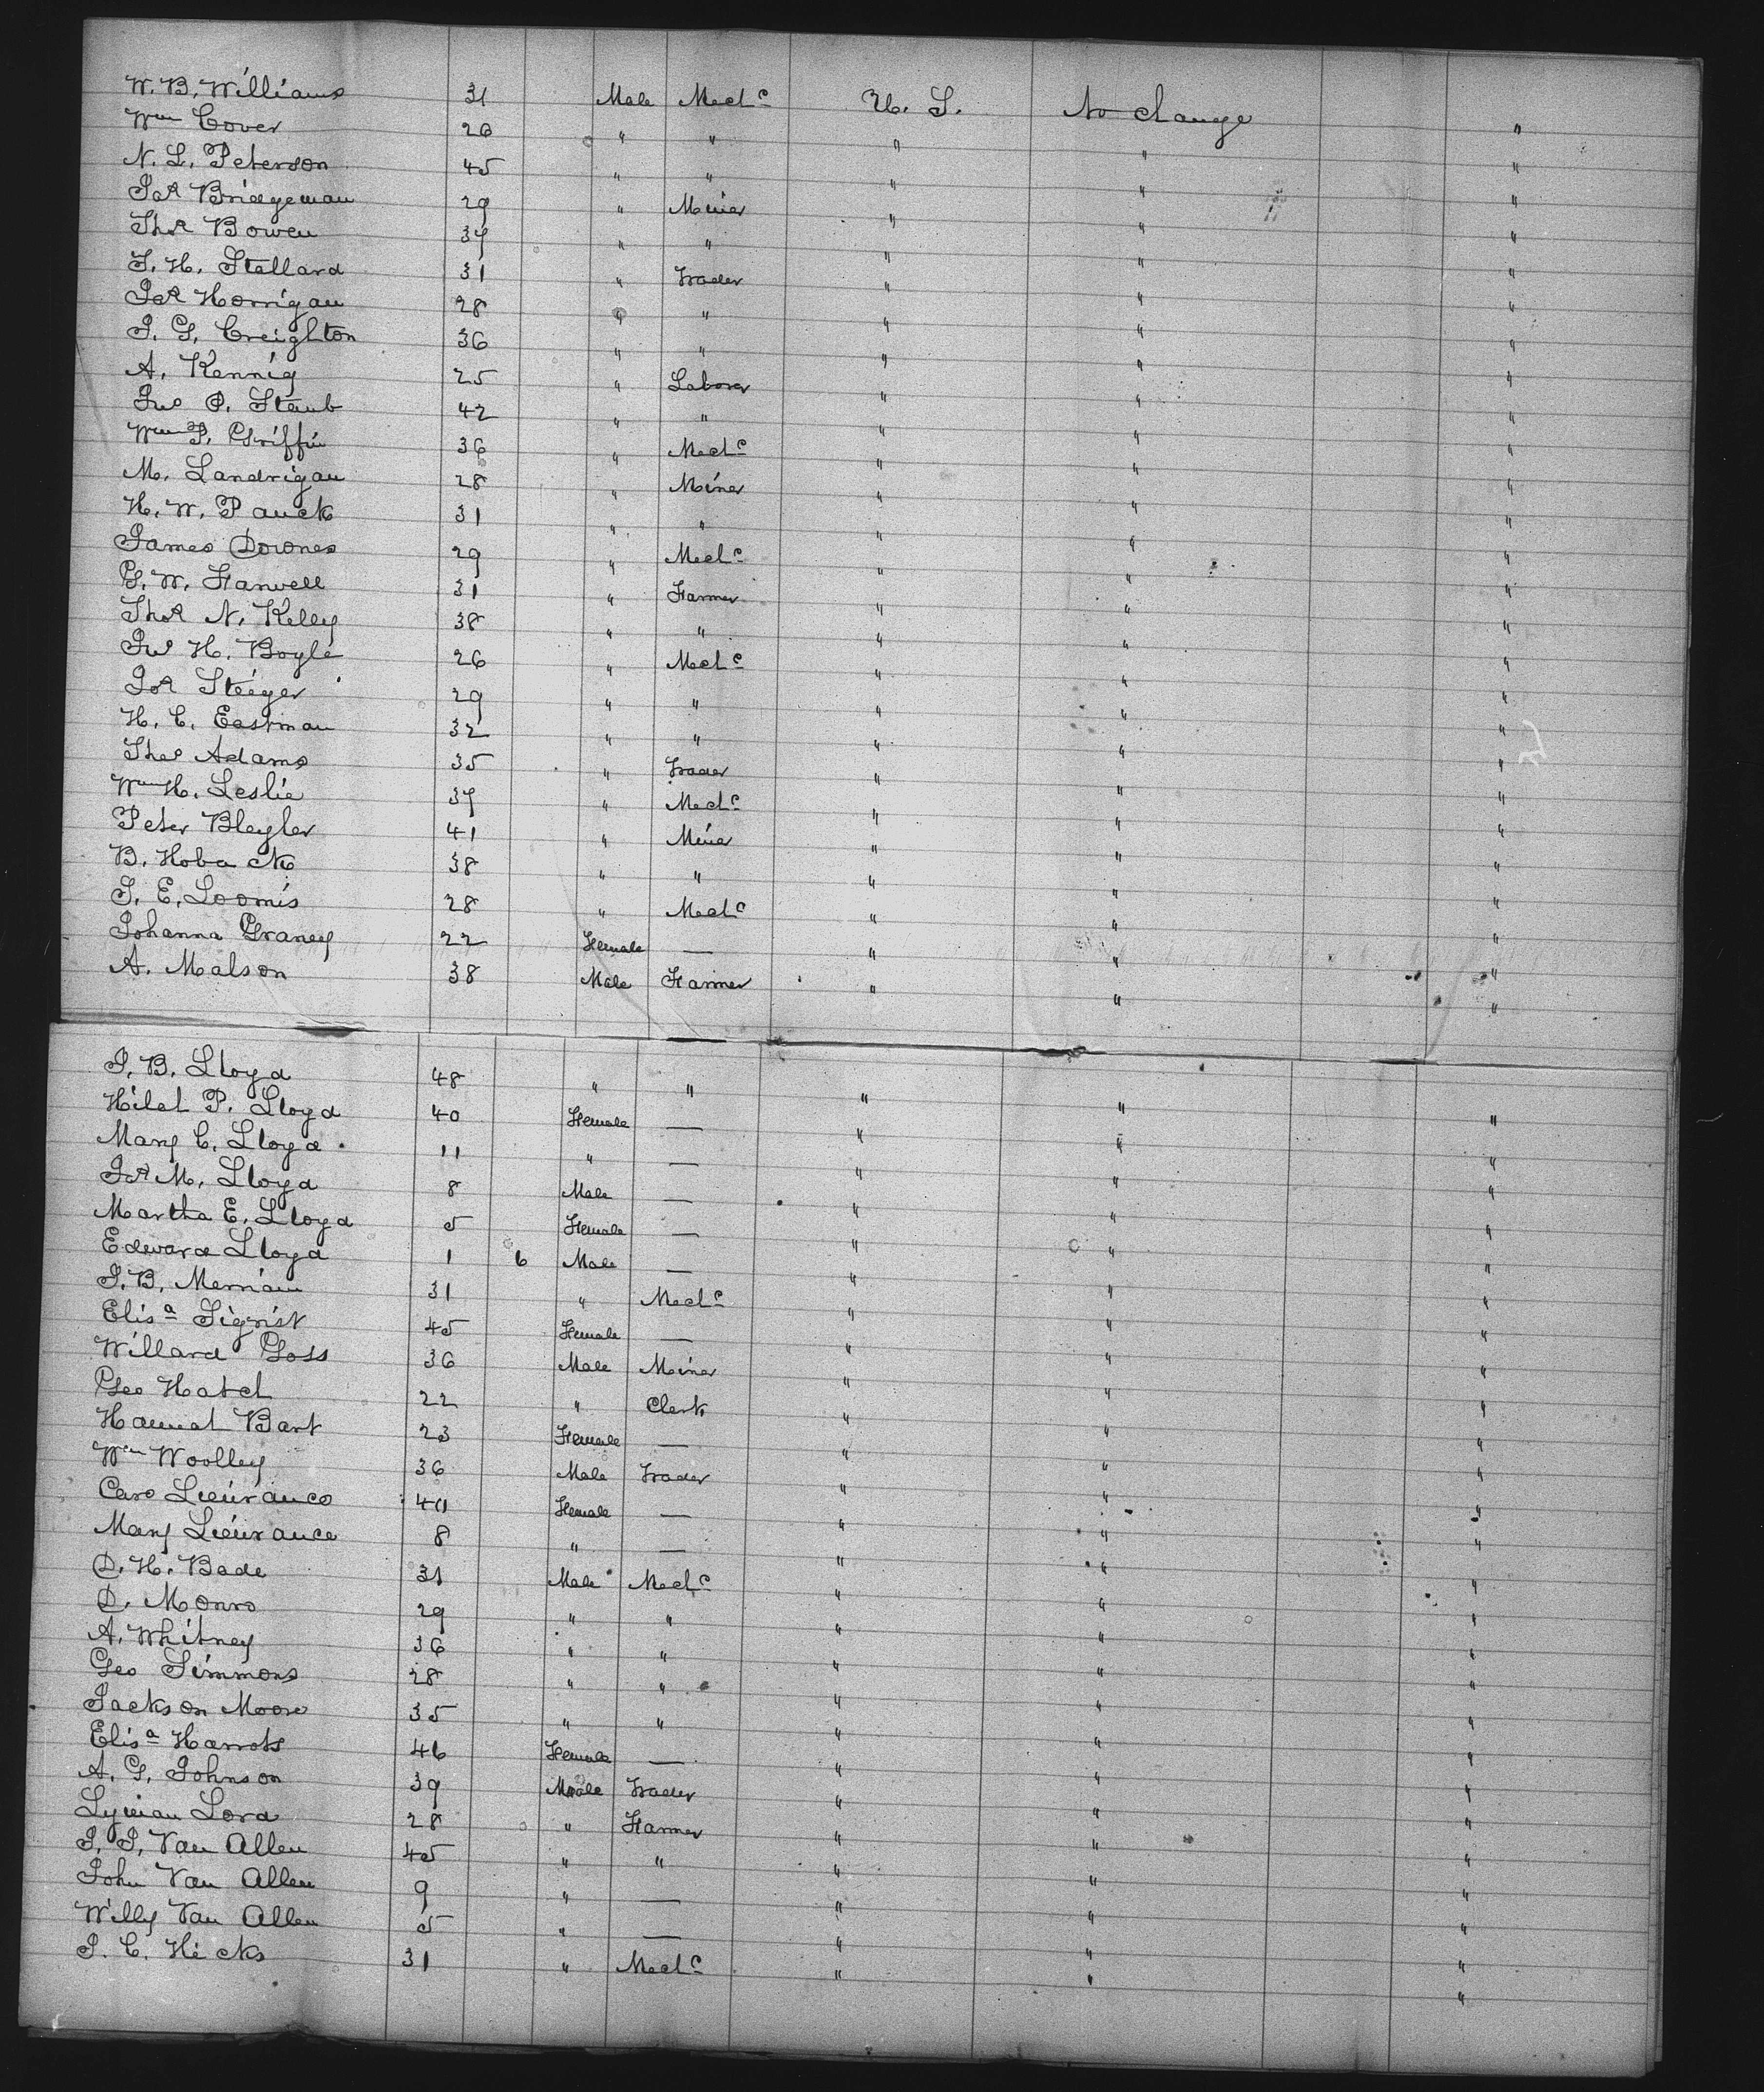 W. B. Williams 31 Male Mech.c U. S. No change "
Wm Cover 26 " " " " "
N. L. Peterson 45 " " " " "
Jas Bridgeman 29 " Miner " " "
Thos Bowen 37 " " " " "
T. H. Stallard 31 " Trader " " "
Jas Horrigan 28 " " " " "
J. G. Creighton 36 " " " " "
A. Kennig 25 " Laborer " " "
Jno P. Staub 42 " " " " "
Wm T. Griffin 36 " Mech.c " " "
M. Landrigan 28 " Miner " " "
H. W. Pauck 31 " " " " "
James Downes 29 " Mech.c " " "
G. W. Farwell 31 " Farmer " " "
Thos N. Kelley 38 " " " " "
Jno H. Boyle 26 " Mech.c " " "
Jos Steiger 29 " " " " "
H. C. Eastman 32 " " " " "
Theo Adams 35 " Trader " " "
Wm H. Leslie 37 " Mech.c " " "
Peter Blegler 41 " Miner " " "
B. Hoback 38 " " " " "
J. E. Loomis 28 " Mech.c " " "
Johanna Graney 22 Female — " " "
A. Malson 38 Male Farmer " " "
J. B. Lloyd 48 " " " " "
Hilah P. Lloyd 40 Female — " " "
Mary C. Lloyd 11 " — " " "
Jas M. Lloyd 8 Male — " " "
Martha E. Lloyd 5 Female — " " "
Edward Lloyd 1 6 Male — " " "
J. B. Merriam 31 " Mech.c " " "
Elisa Sigrist 45 Female — " " "
Willard Goss 36 Male Miner " " "
Geo Hatch 22 " Clerk " " "
Hannah Bart 23 Female — " " "
Wm Woolley 36 Male Trader " " "
Caro Lieurance Female — " " "
Mary Lieurance 8 " — " " "
D. H. Bade 31 Male Mech.c " " "
D. Monro 29 " " " " "
A. Whitney 36 " " " " "
Geo Simmons 28 " " " " "
Jackson Moore 35 " " " " "
Elisa Harrots 46 Female — " " "
A. G. Johnson 39 Male Trader " " "
Lyman Lord 28 " Farmer " " "
J. J. Van Allen 45 " " " " "
John Van Allen 9 " — " " "
Willy Van Allen 5 " — " " "
J. C. Hicks 31 " Mech.c " " "